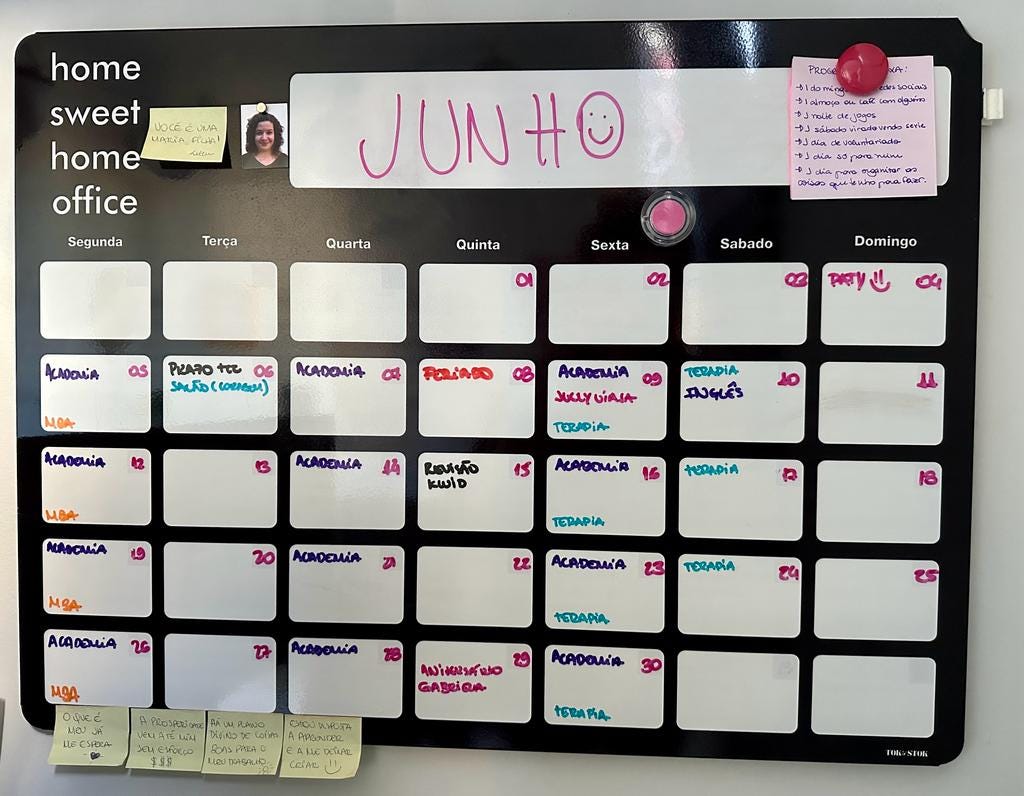 home
sweet
home
office
VOCÊ É UMA
MARIA
JUNHO
1 almoço ou café com alguém
1 noite de jogos
1 sábado virado vendo serie
1 dia de voluntariado
1 dia só para mim
1 dia para organizar as
coisas que tenho para fazer.
Segunda Terça Quarta Quinta Sexta Sabado Domingo
01 02 03 PATY 04
ACADEMIA 05
MBA
PRAZO TCC 06
SALÃO (CORAGEM)
ACADEMIA 07
FERIADO 08
ACADEMIA 09
TERAPIA
TERAPIA 10
INGLÊS
11
ACADEMIA 12
MBA
13
ACADEMIA 14
REVISÃO 15
KWID
ACADEMIA 16
TERAPIA
TERAPIA 17
18
ACADEMIA 19
MBA
20
ACADEMIA 21
22
ACADEMIA 23
TERAPIA
TERAPIA 24
25
ACADEMIA 26
MBA
27
ACADEMIA 28
29
ANIVERSÁRIO
GABRIELA
ACADEMIA 30
TERAPIA
O QUE É
MEU JÁ
ME ESPERA
A PROSPERIDADE
VEM ATÉ MIM
SEM ESFORÇO
$$$
HÁ UM PLANO
DIVINO DE COISAS
BOAS PARA O
MEU TRABALHO
ESTOU DISPOSTA
A APRENDER
E A ME DEIXAR
CRIAR
TOK&STOK